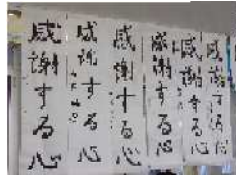 感謝する心
感謝する心
感謝する心
感謝する心
感謝する心
感謝する心